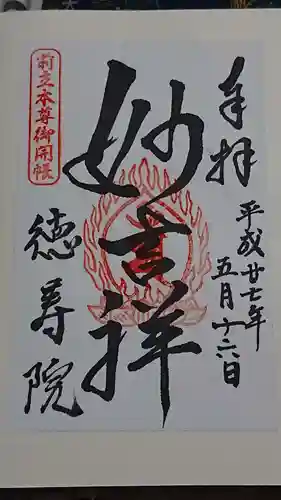 奉拝
平成廿七年
五月十六日
妙吉祥
前立本尊御開帳
徳尋院